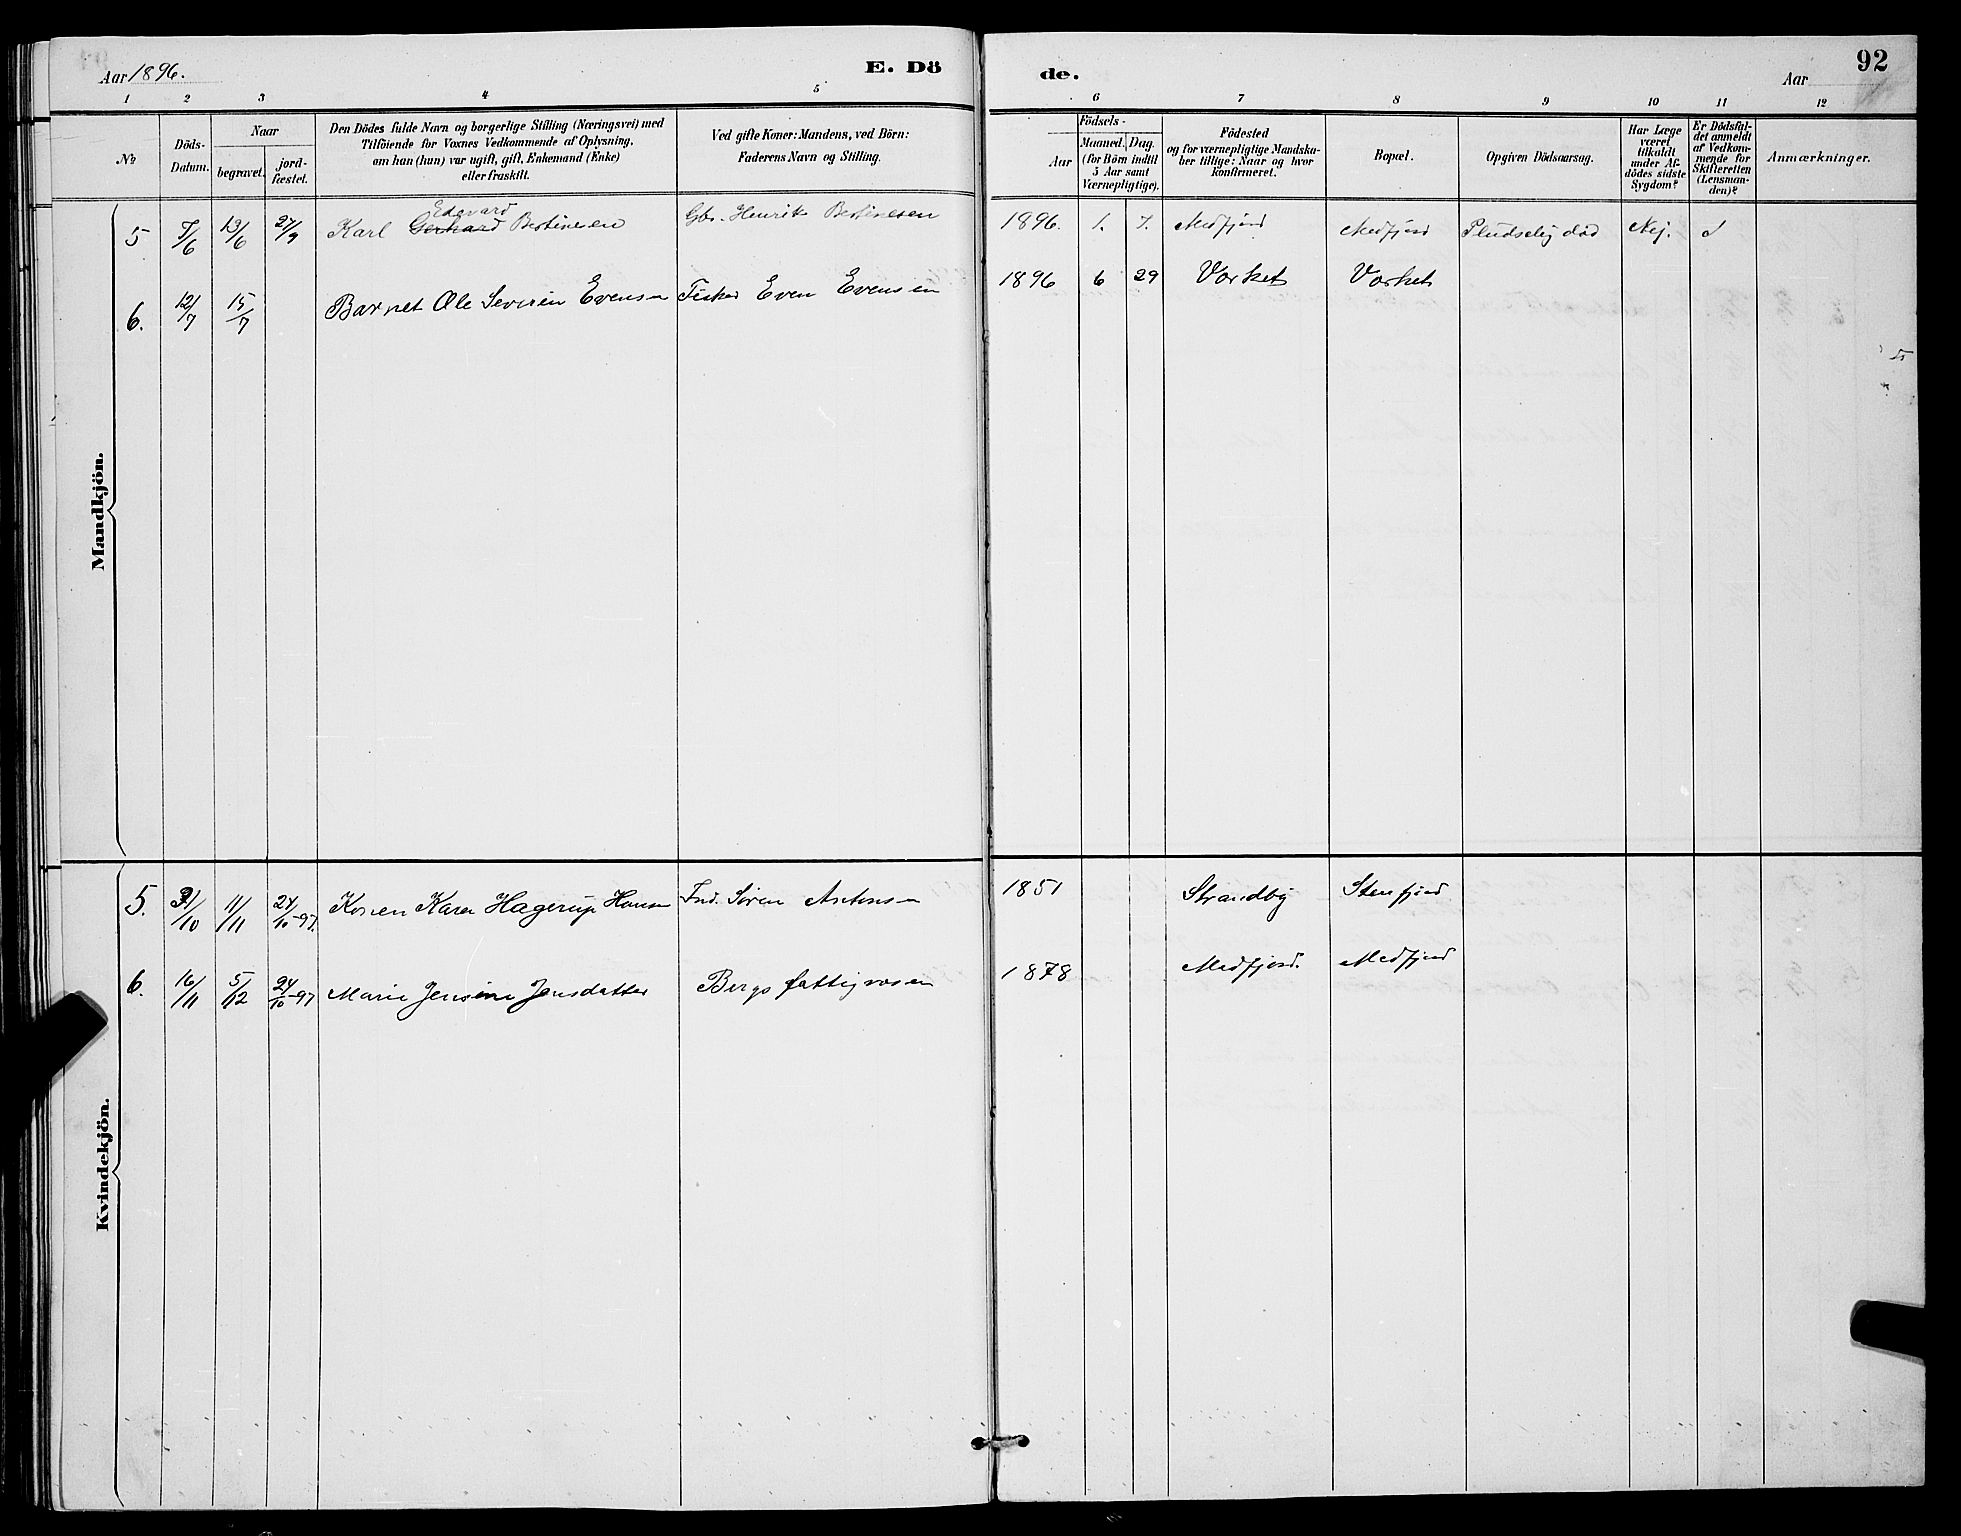 Aar 1896.
E. Dö
de.
Aar
92
1 2 3 4 5
6 7 8 9 10 11 12
№
Döds-Datum.
Naar
begravet.
jord-fæstet.
Den Dödes fulde Navn og borgerlige Stilling (Næringsvei) med
Tilföiende for Voxnes Vedkommende af Oplysning,
om han (hun) var ugift, gift, Enkemand (Enke)
eller fraskilt.
Ved gifte Koner: Mandens, ved Börn:
Faderens Navn og Stilling.
Födsels-
Aar
Maaned. Dag.
(for Börn indtil
5 Aar samt
Værnepligtige).
Födested
og for værnepligtige Mandska-
ber tillige: Naar og hvor
konfirmeret.
Bopæl.
Opgiven Dödsaarsag.
Har Læge
været
tilkaldt
under Af-
dödes sidste
Sygdom?
Er Dödsfal-
det anmeldt
af Vedkom-
mende for
Skifteretten
(Lensman-
den)?
Anmærkninger.
Mandkjön.
Edevard
5 7/6 13/6 27/9 Karl Gerhard Bertinesen Gbr. Henrik Bertinesen 1896. 1. 7. Medfjord Medfjord Pludselig död Nej.
6. 12/7 15/7 Barnet Ole Severin Evensen Fisker Even Evensen 1896 6 29 Vorket Vorket
Kvindekjön.
5. 31/10 11/11 24/10-97. Konen Karen Hagerup Hansen Ind. Sören Antonsen 1851 Strandby Stenfjord
6. 16/11 5/12 24/10-97 Marie Jensine Jensdatter Bergs fattigvæsen 1878 Medfjord. Medfjord